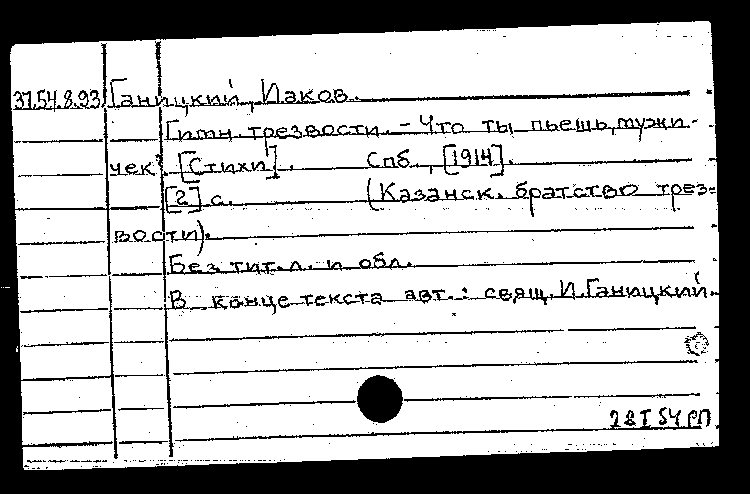 37.54.8.93 Ганицкий, Иаков.
Гимн трезвости. - Что ты пьешь, мужи-
чек? [Стихи]. Спб., [1914].
[2] с. (Казанск. братство трез=
вости).
Без тит. л. и обл.
В конце текста авт.: свящ. И. Ганицкий.
28 I 54 РП